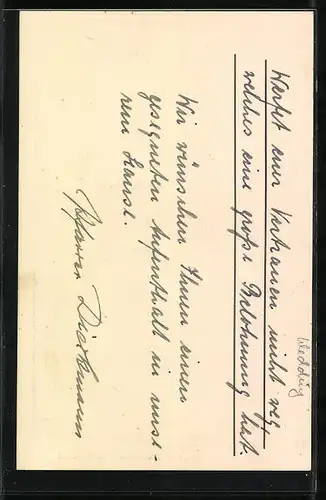 Werfet euer Vertrauen nicht weg,
welches eine große Belohnung hat.
Wir wünschen Ihnen einen
gesegneten Aufenthalt in unse-
rem Hause.
Pfarrer Dieckmann